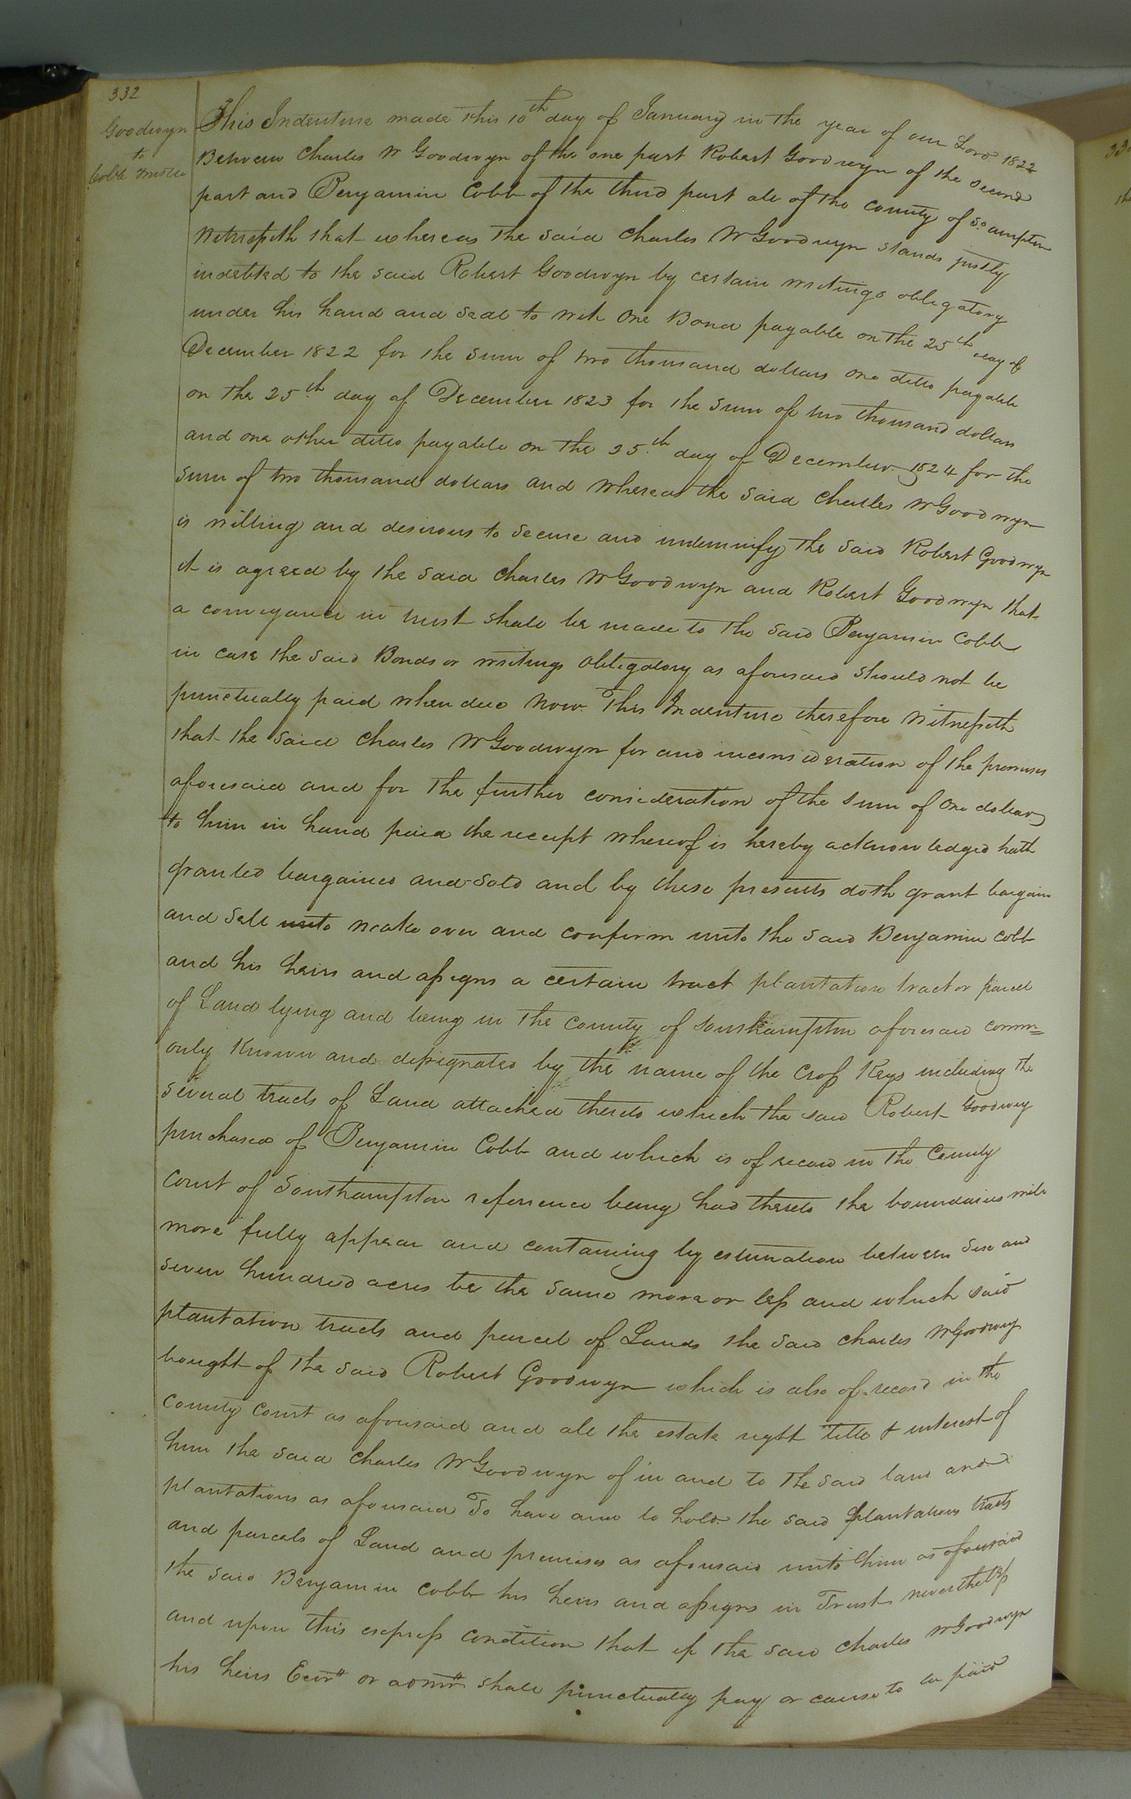 332
Goodwyn
to
Cobb trustee
This Indenture made this 10th day of January in the year of our Lord 1822
Between Charles W Goodwyn of the one part Robert Goodwyn of the second
part and Benjamin Cobb of the third part all of the County of So ampton
Witnesseth that whereas the said Charles W Goodwyn stands justly
indebted to the said Robert Goodwyn by certain writings obligatory
under his hand and seal to wit One Bond payable on the 25th day of
December 1822 for the sum of two thousand dollars one ditto payable
on the 25th day of December 1823 for the sum of two thousand dollars
and one other ditto payable on the 25th day of December 1824 for the
sum of two thousand dollars and whereas the said Charles W Goodwyn
is willing and desirous to secure and indemnify the said Robert Goodwyn
it is agreed by the said Charles W Goodwyn and Robert Goodwyn that
a conveyance in trust shall be made to the said Benjamin Cobb
in case the said Bonds or writings obligatory as aforesaid should not be
punctually paid when due Now This Indenture therefore Witnesseth
that the said Charles W Goodwyn for and inconsideration of the premises
aforesaid and for the further consideration of the sum of one dollar
to him in hand paid the receipt whereof is hereby acknowledged hath
granted bargained and sold and by these presents doth grant bargain
and sell unto make over and confirm unto the said Benjamin Cobb
and his heirs and assigns a certain tract plantation tract or parcel
of Land lying and being in the County of Southampton aforesaid comm=
only known and designated by the name of the Cross Keys including the
several tracts of Land attached thereto which the said Robert Goodwyn
purchased of Benjamin Cobb and which is of record in the County
Court of Southampton reference being had thereto the boundaries will
more fully appear and containing by estimation between six and
seven hundred acres be the same more or less and which said
plantation tracts and parcel of Lands the said Charles W Goodwyn
bought of the said Robert Goodwyn which is also of record in the
County Court as aforesaid and all the estate right title & interest of
him the said Charles W Goodwyn of in and to the said land and
plantations as aforesaid To have and to hold the said plantations tracts
and parcels of Land and premises as aforesaid unto him as aforesaid
the said Benjamin Cobb his heirs and assigns in Trust nevertheless
and upon this express condition that if the said Charles W Goodwyn
his heirs Exors or admrs shall punctually pay or cause to be paid